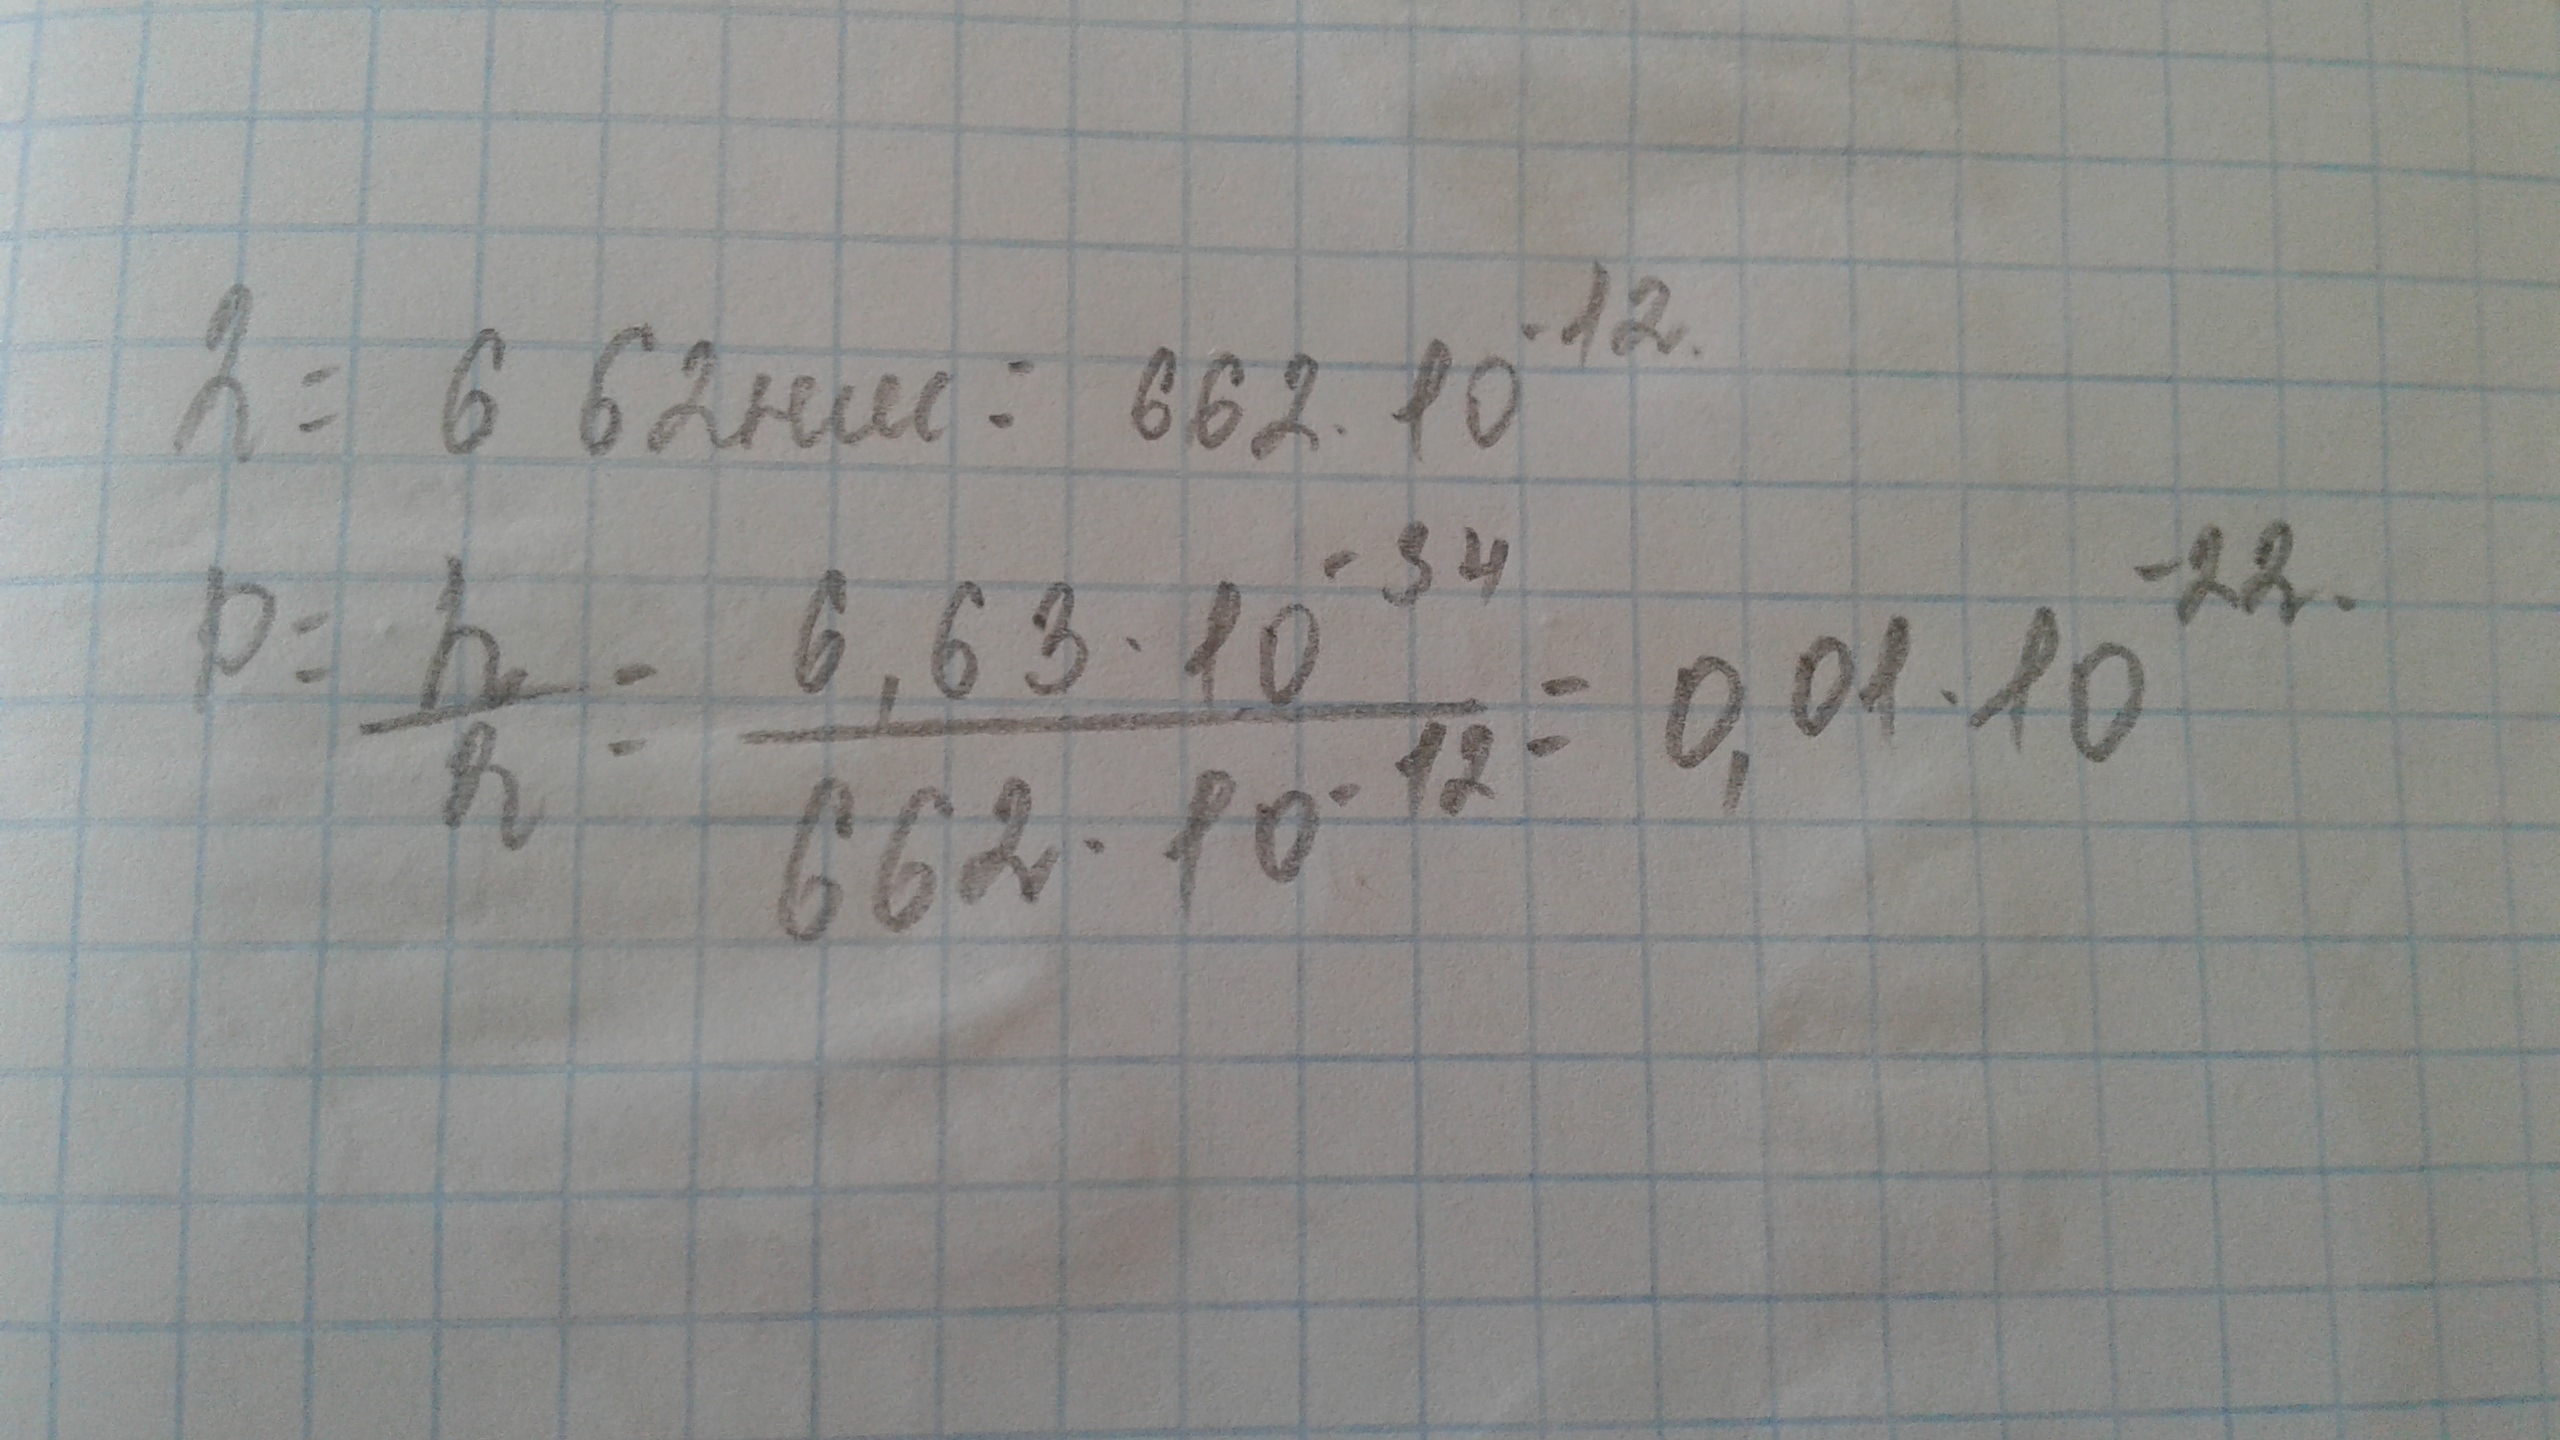 λ = 662нм = 662 · 10^-12.
p = h/λ = 6,63 · 10^-34 / 662 · 10^-12 = 0,01 · 10^-22.